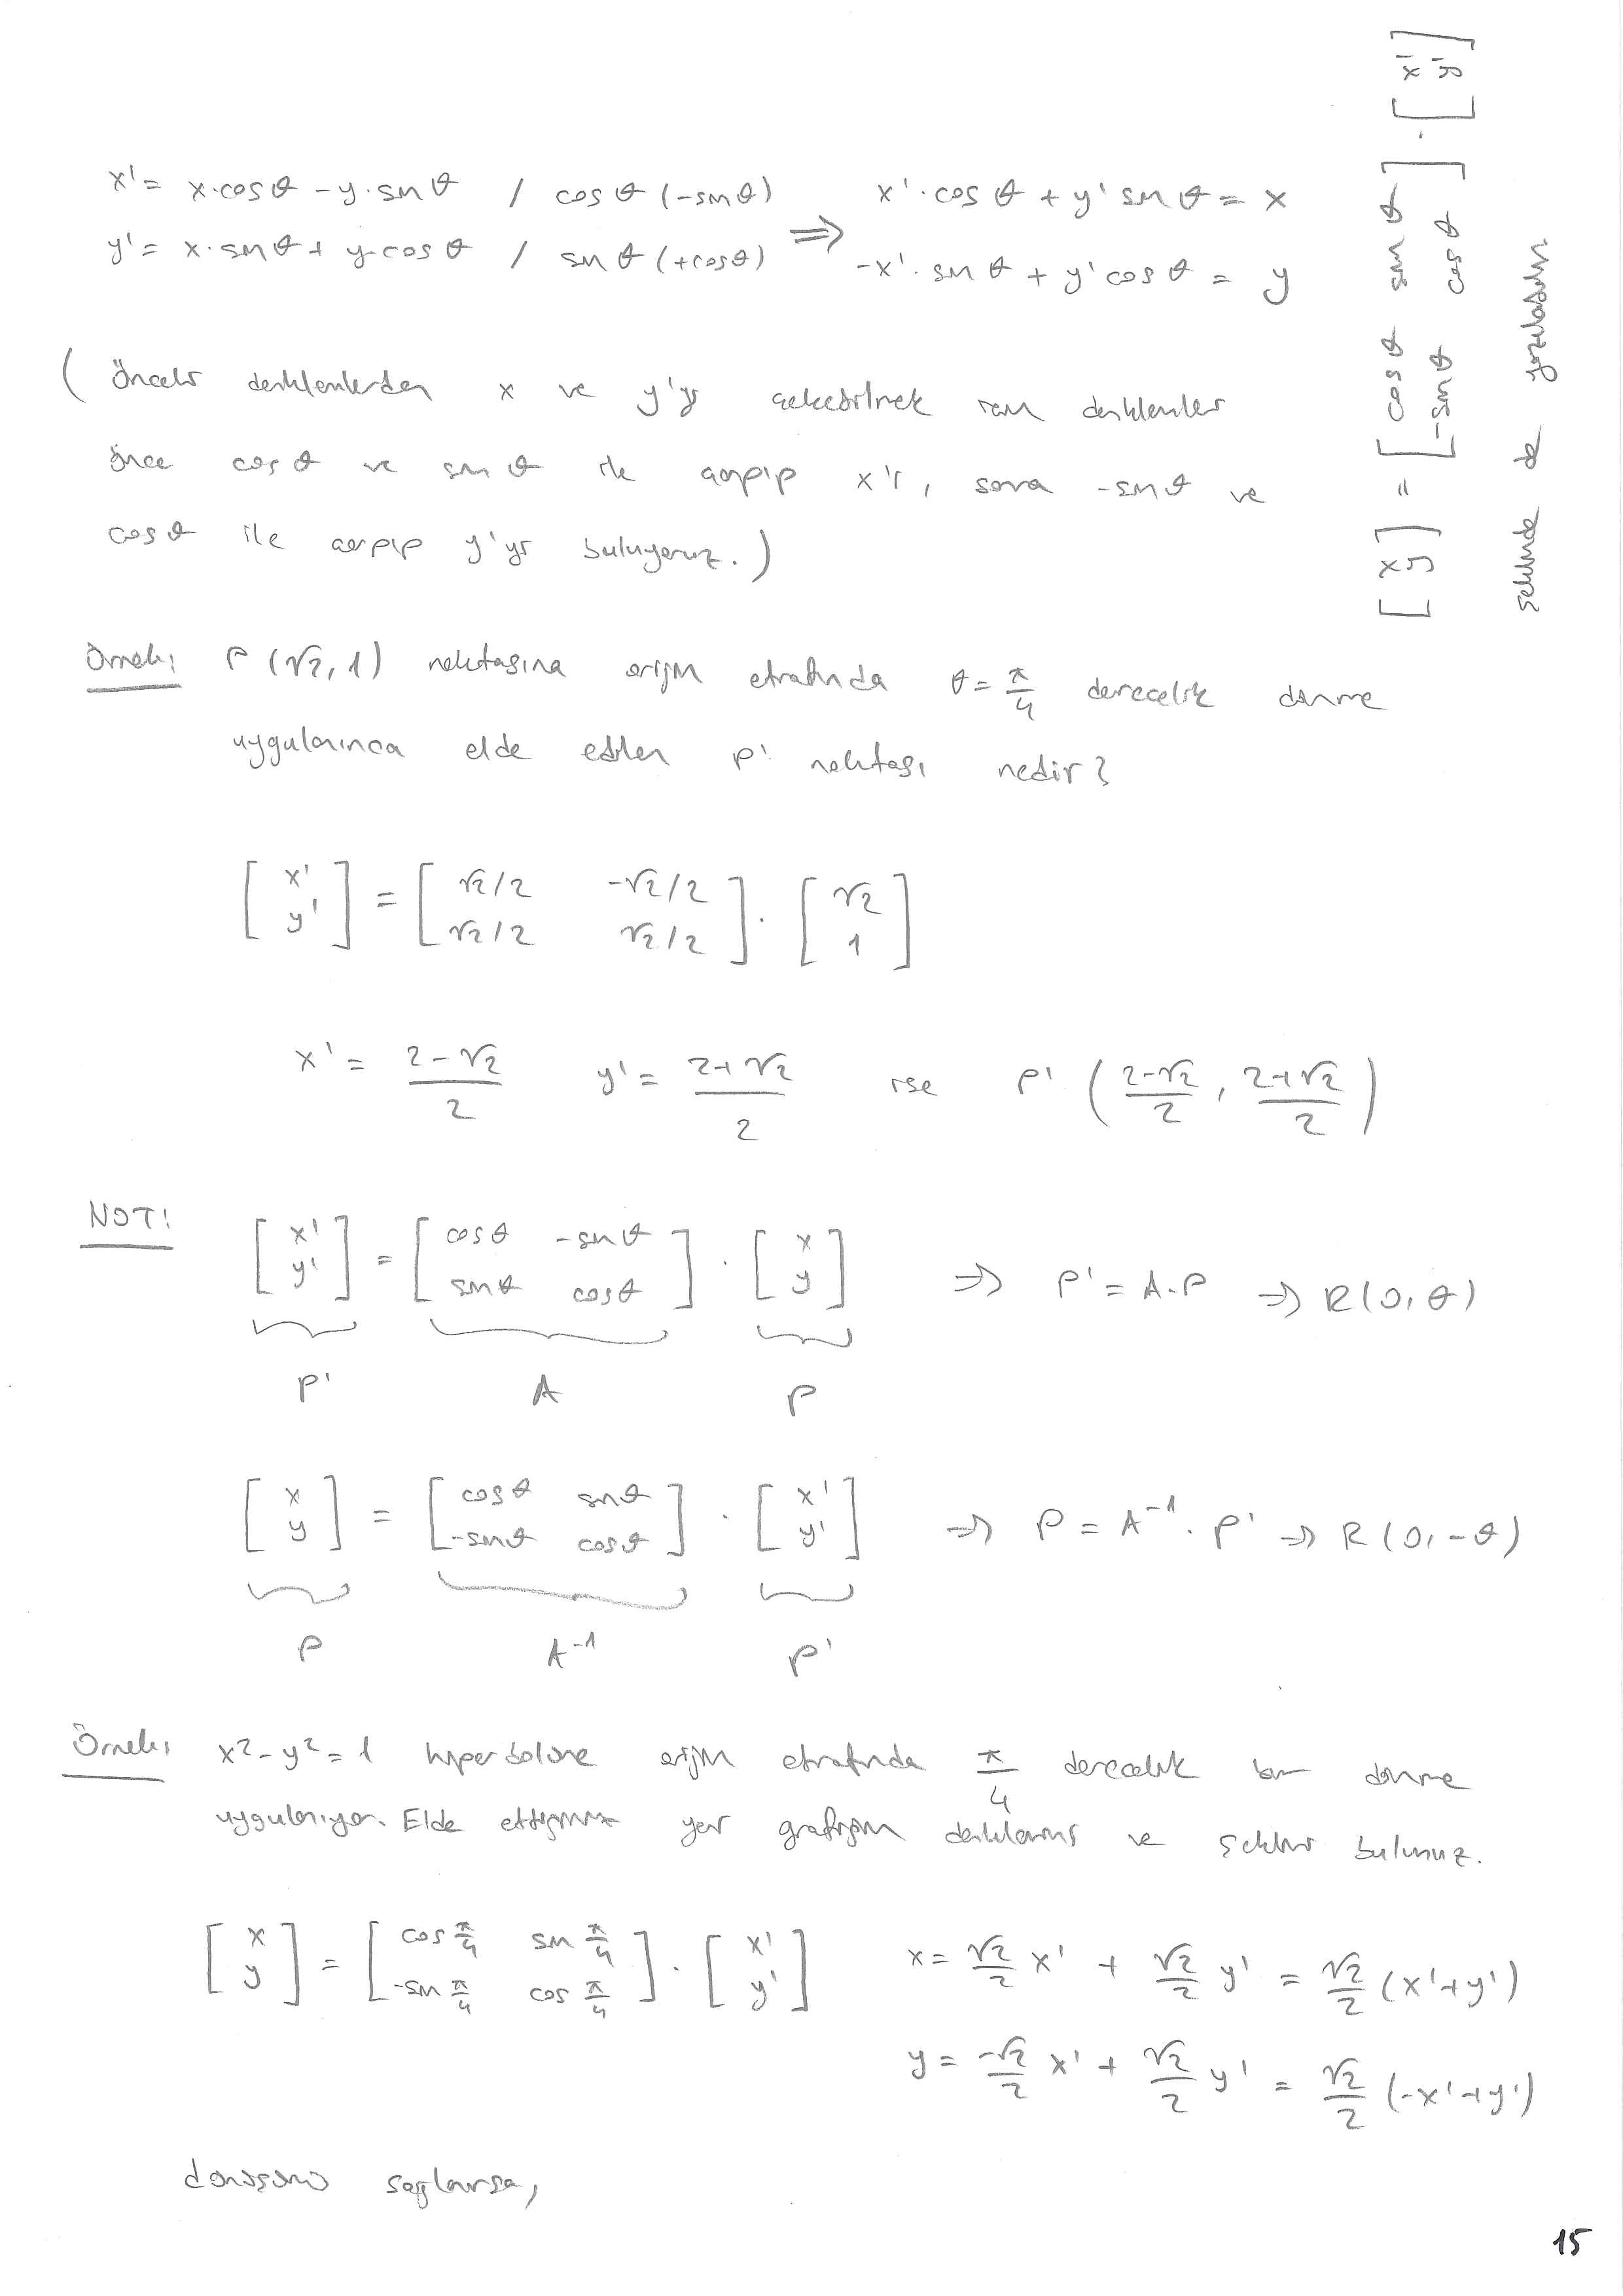 x' = x·cosθ - y·sinθ / cosθ (-sinθ) ⇒ x'·cosθ + y' sinθ = x
y' = x·sinθ + y·cosθ / sinθ (+cosθ) -x'·sinθ + y' cosθ = y
( Önceki denklemlerden x ve y'yi çekebilmek için denklemler
önce cosθ ve sinθ ile çarpıp x'i, sonra -sinθ ve
cosθ ile çarpıp y'yi buluyoruz. )
[x y] = [cosθ sinθ -sinθ cosθ] · [x' y']
şeklinde de yazılabilir
Örnek: P(√2, 1) noktasına orijin etrafında θ = π/4 derecelik dönme
uygulanınca elde edilen P' noktası nedir?
[x' y'] = [√2/2 -√2/2 √2/2 √2/2] · [√2 1]
x' = (2-√2)/2 y' = (2+√2)/2 ise P' ( (2-√2)/2 , (2+√2)/2 )
NOT: [x' y'] = [cosθ -sinθ sinθ cosθ] · [x y] ⇒ P' = A.P ⇒ R(0, θ)
P' A P
[x y] = [cosθ sinθ -sinθ cosθ] · [x' y'] ⇒ P = A⁻¹. P' ⇒ R(0, -θ)
P A⁻¹ P'
Örnek: x² - y² = 1 hiperbolüne orijin etrafında π/4 derecelik bir dönme
uygulanıyor. Elde ettiğimiz yeni grafiğin denklemini ve şeklini bulunuz.
[x y] = [cos π/4 sin π/4 -sin π/4 cos π/4] · [x' y'] x = √2/2 x' + √2/2 y' = √2/2 (x'+y')
y = -√2/2 x' + √2/2 y' = √2/2 (-x'+y')
dönüşümü sağlarsa,
15